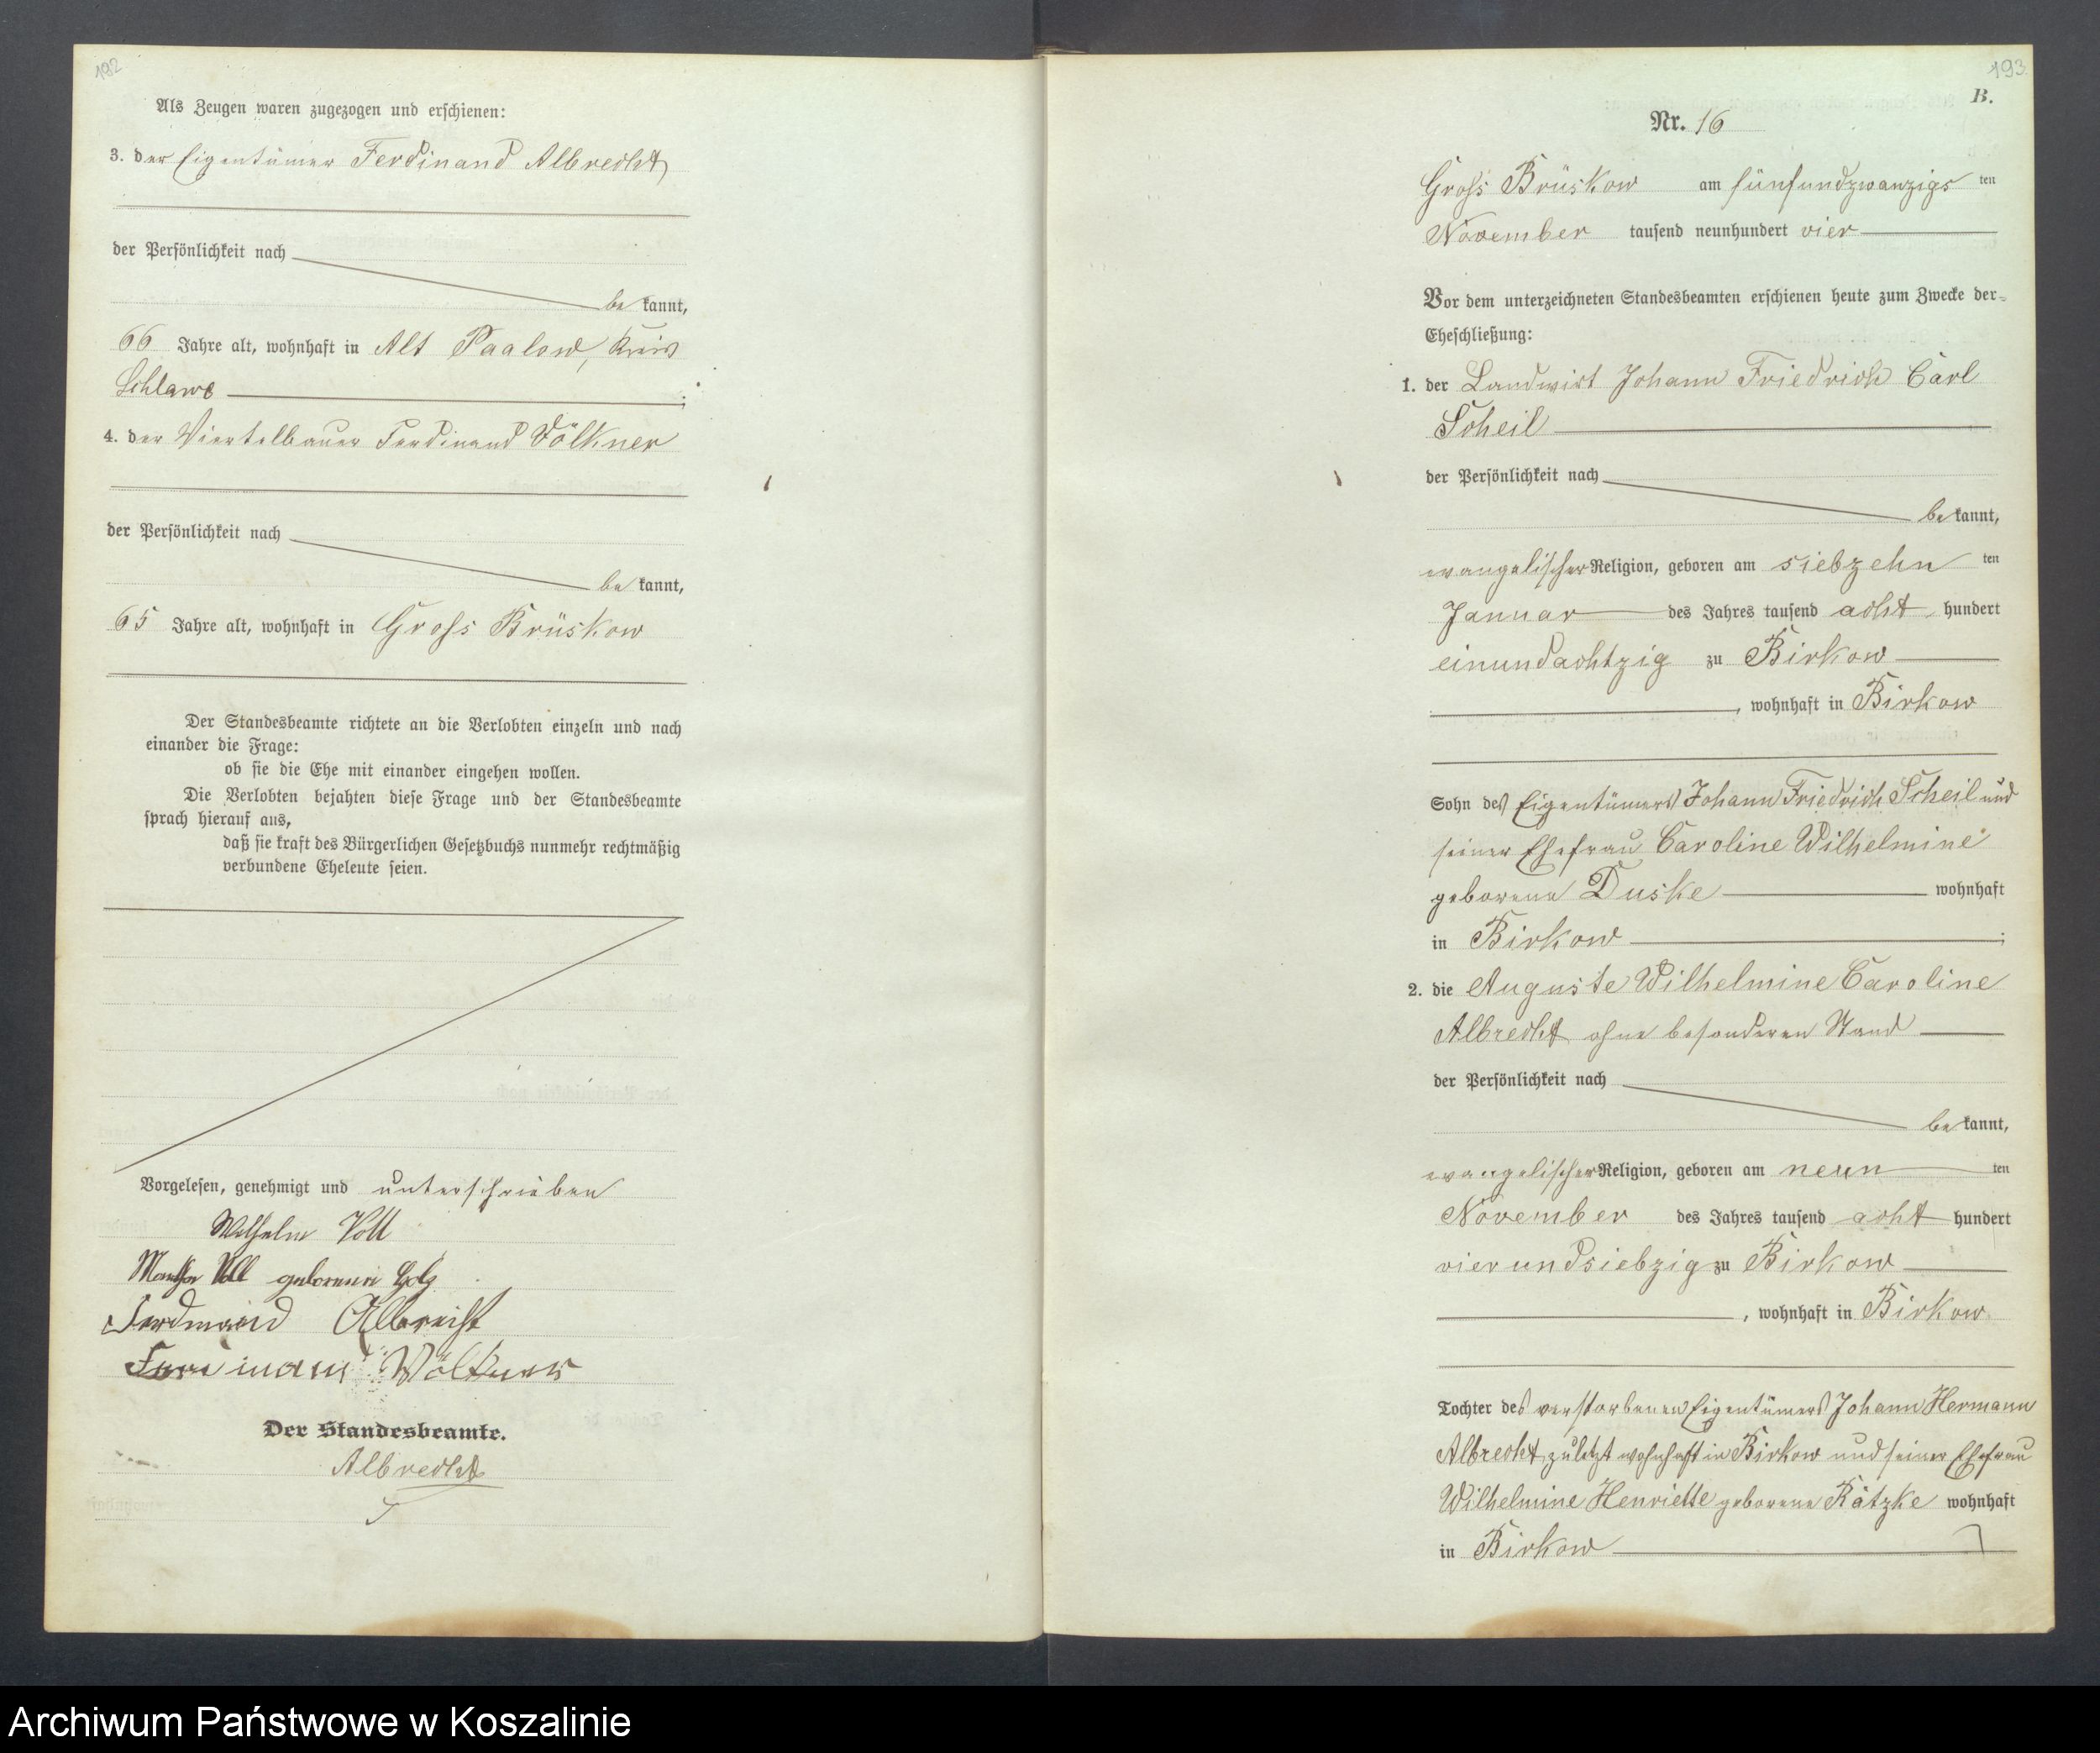 192
Als Zeugen waren zugezogen und erschienen:
3. der Eigentümer Ferdinand Albrecht
der Persönlichkeit nach
be kannt,
66 Jahre alt, wohnhaft in Alt Paalow, Kreis
Schlawe ;
4. der Viertelbauer Ferdinand Völkner
der Persönlichkeit nach
be kannt,
65 Jahre alt, wohnhaft in Gross Brüskow
Der Standesbeamte richtete an die Verlobten einzeln und nach
einander die Frage:
ob sie die Ehe mit einander eingehen wollen.
Die Verlobten bejahten diese Frage und der Standesbeamte
sprach hierauf aus,
daß sie kraft des Bürgerlichen Gesetzbuchs nunmehr rechtmäßig
verbundene Eheleute seien.
Vorgelesen, genehmigt und unterschrieben
Wilhelm Voll
Martha Voll geborene
Ferdinand Albrecht
Ferdinand Völkner
Der Standesbeamte.
Albrecht
193
B.
Nr. 16
Gross Brüskow am fünfundzwanzigs ten
November tausend neunhundert vier
Vor dem unterzeichneten Standesbeamten erschienen heute zum Zwecke der
Eheschließung:
1. der Landwirt Johann Friedrich Carl
Scheil
der Persönlichkeit nach
be kannt,
evangelischer Religion, geboren am siebzehn ten
Januar des Jahres tausend acht hundert
einundachtzig zu Birkow
, wohnhaft in Birkow
Sohn des Eigentümers Johann Friedrich Scheil und
seiner Ehefrau Caroline Wilhelmine
geborene Duske wohnhaft
in Birkow ;
2. die Auguste Wilhelmine Caroline
Albrecht ohne besonderen Stand
der Persönlichkeit nach
be kannt,
evangelischer Religion, geboren am neun ten
November des Jahres tausend acht hundert
vierundsiebzig zu Birkow
, wohnhaft in Birkow
Tochter des verstorbenen Eigentümers Johann Hermann
Albrecht, zuletzt wohnhaft in Birkow und seiner Ehefrau
Wilhelmine Henriette geborene Rätzke wohnhaft
in Birkow
Archiwum Państwowe w Koszalinie